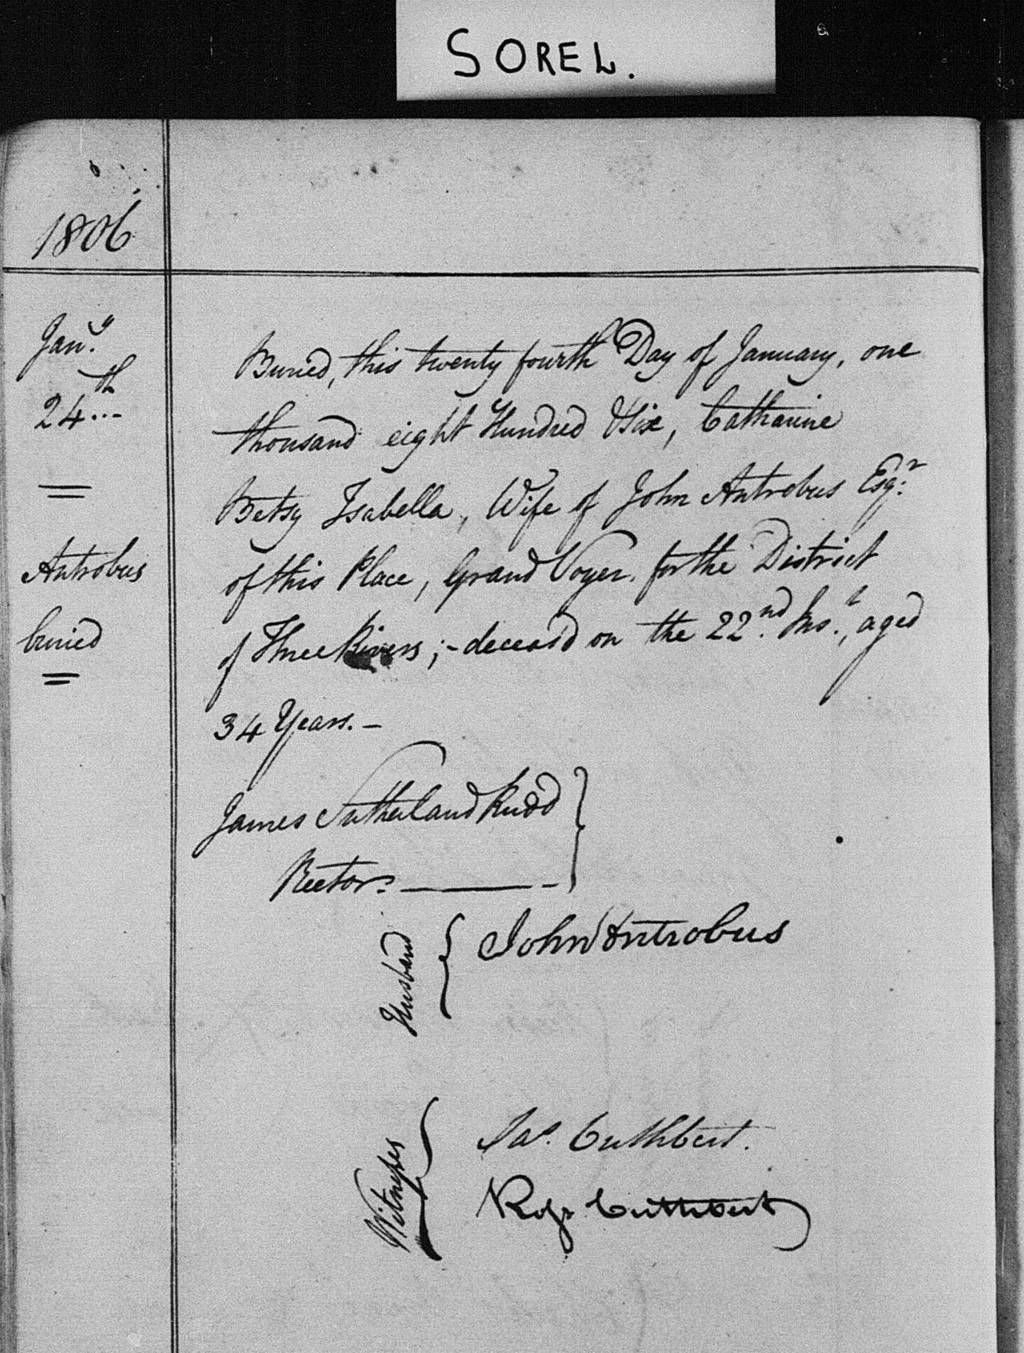 SOREL.
1806
Jan.y
24th...
Antrobus
buried
Buried, this twenty fourth Day of January, one
thousand eight Hundred & Six, Catharine
Betsy Isabella, Wife of John Antrobus Esq.r
of this Place, Grand Voyer for the District
of Three Rivers; - deceas'd on the 22.nd Ins.t, aged
34 Years. -
James Sutherland Rudd
Rector.
Husband
John Antrobus
Witnesses
Jas. Cuthbert.
Ross Cuthbert